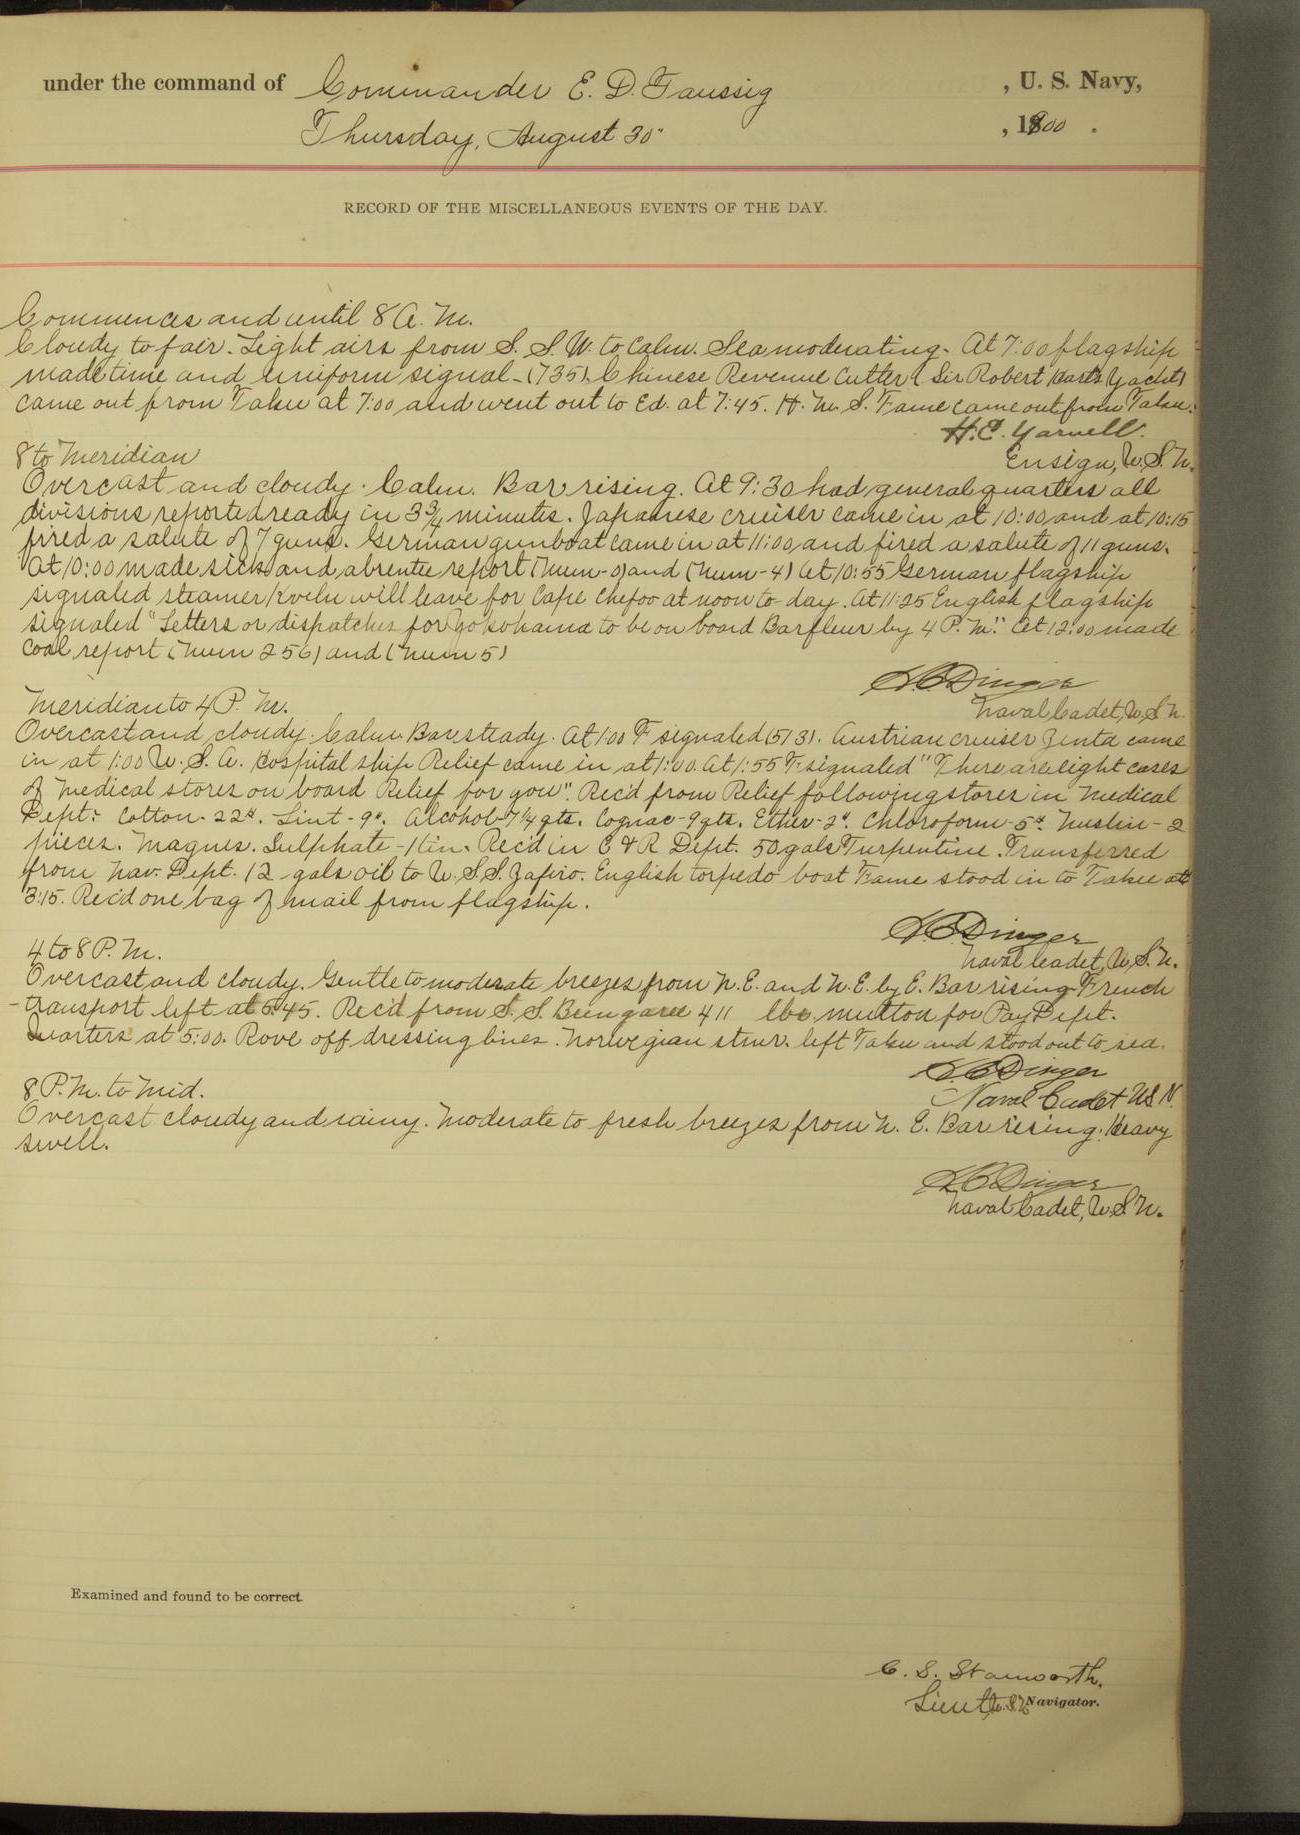 under the command of Commander E. D. Taussig, U. S. Navy,
Thursday, August 30, 1900.
RECORD OF THE MISCELLANEOUS EVENTS OF THE DAY.
Commences and until 8 A. M.
Cloudy to fair. Light airs from S. S. W. to calm. Sea moderating. At 7:00 flagship
made time and uniform signal - (735). Chinese Revenue Cutter (Sir Robert Hart's Yacht)
came out from Taku at 7:00 and went out to Ed. at 7:45. H. M. S. Fame came out from Taku.
H. E. Yarnell.
Ensign, U. S. N.
8 to Meridian
Overcast and cloudy. Calm. Bar rising. At 9:30 had general quarters all
divisions reported ready in 3 3/4 minutes. Japanese cruiser came in at 10:00 and at 10:15
fired a salute of 7 guns. German gunboat came in at 11:00 and fired a salute of 11 guns.
At 10:00 made sick and absentee report (Num-0) and (Num-4) At 10:55 German flagship
signaled steamer Koeln will leave for Cape Chefoo at noon to-day. At 11:25 English flagship
signaled "Letters or dispatches for Yokohama to be on board Barfleur by 4 P. M." At 12:00 made
coal report (Num 256) and (Num 5)
H C Dinger
Naval Cadet, U. S. N.
Meridian to 4 P. M.
Overcast and cloudy. Calm. Bar steady. At 1:00 F signaled (513). Austrian cruiser Zenta came
in at 1:00 U. S. A. Hospital ship Relief came in at 1:00. At 1:55 F. signaled "There are eight cases
of Medical stores on board Relief for you". Rec'd from Relief following stores in Medical
Dept: Cotton - 22#. Lint - 9#. Alcohol - 7 1/4 qts. Cognac - 9 qts. Ether - 2#. Chloroform - 5#. Muslin - 2
pieces. Magnes. Sulphate - 1 tin. Rec'd in C & R Dept. 50 gals Turpentine. Transferred
from Nav. Dept. 12 gals oil to U. S. S. Zafiro. English torpedo boat Fame stood in to Taku at
3:15. Rec'd one bag of mail from flagship.
H C Dinger
Naval Cadet, U. S. N.
4 to 8 P. M.
Overcast and cloudy. Gentle to moderate breezes from N. E. and N. E. by E. Bar rising. French
transport left at 5:45. Rec'd from S. S. 411 lbs mutton for Pay Dept.
Quarters at 5:00. Rove off dressing lines. Norwegian stmr. left Taku and stood out to sea.
H C Dinger
Naval Cadet U S N
8 P. M. to Mid.
Overcast cloudy and rainy. Moderate to fresh breezes from N. E. Bar rising. Heavy
swell.
H C Dinger
Naval Cadet, U. S. N.
Examined and found to be correct.
C. S. Stanworth.
Lieut. U. S. N. Navigator.